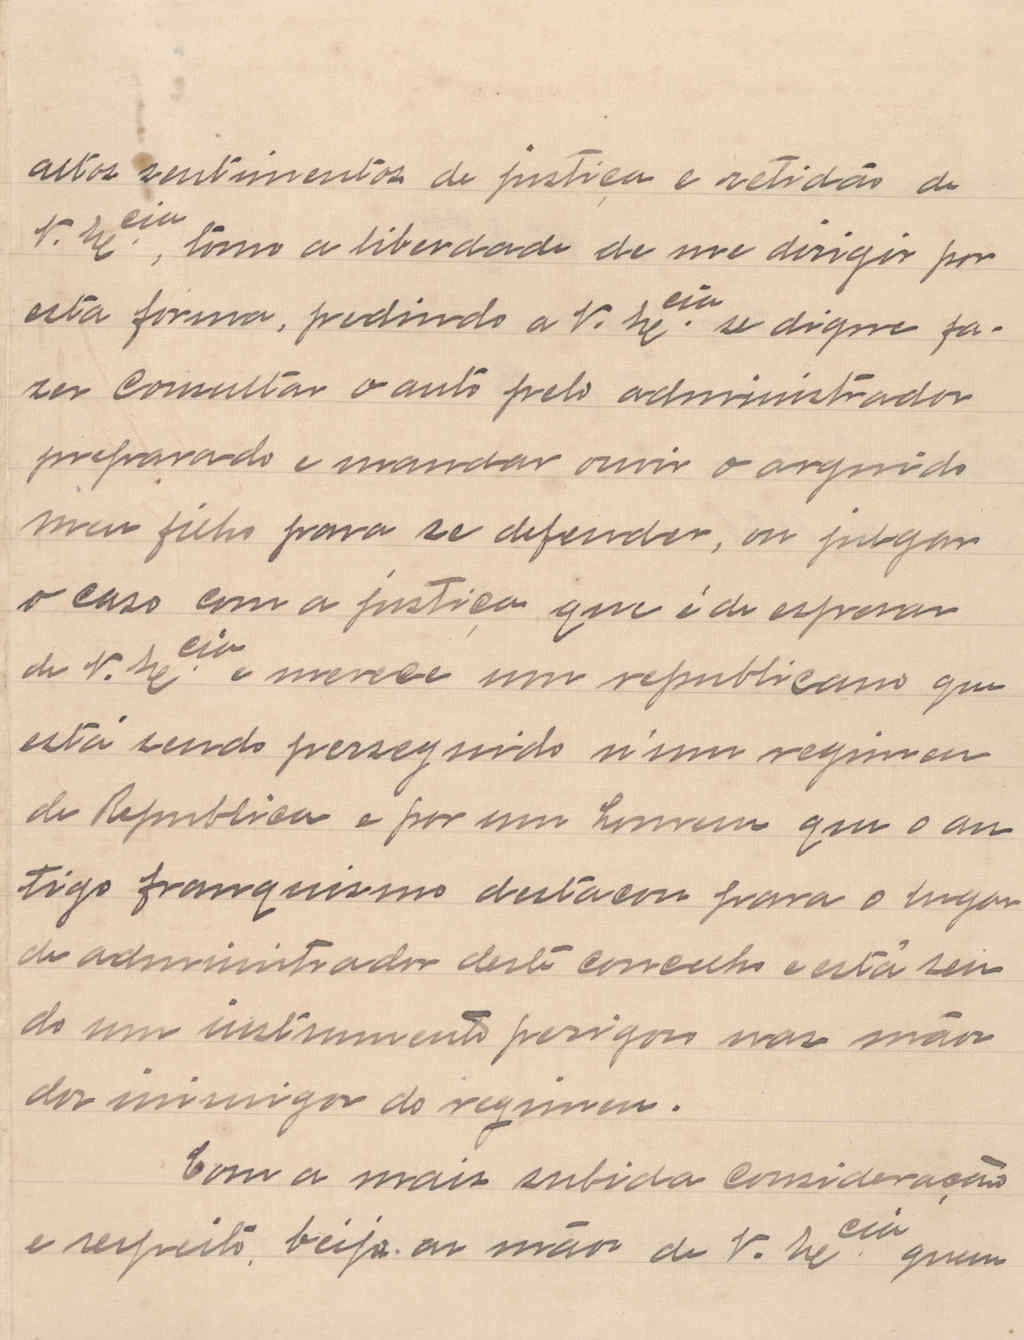 altos sentimentos de justiça e retidão de
V. Ex.cia, tomo a liberdade de me dirigir por
esta forma, pedindo a V. Ex.cia se digne fa-
zer consultar o auto pelo administrador
preparado e mandar ouvir o arguido
meu filho para se defender, ou julgar
o caso com a justiça que é de esperar
de V. Ex.cia e merece um republicano que
está sendo perseguido n'um regimen
de Republica e por um homem que o an
tigo franquismo destacou para o lugar
de administrador deste concelho e está sen
do um instrumento perigoso nas mãos
dos inimigos do regimen.
Com a mais subida consideração
e respeito, beija as mãos de V. Ex.cia quem